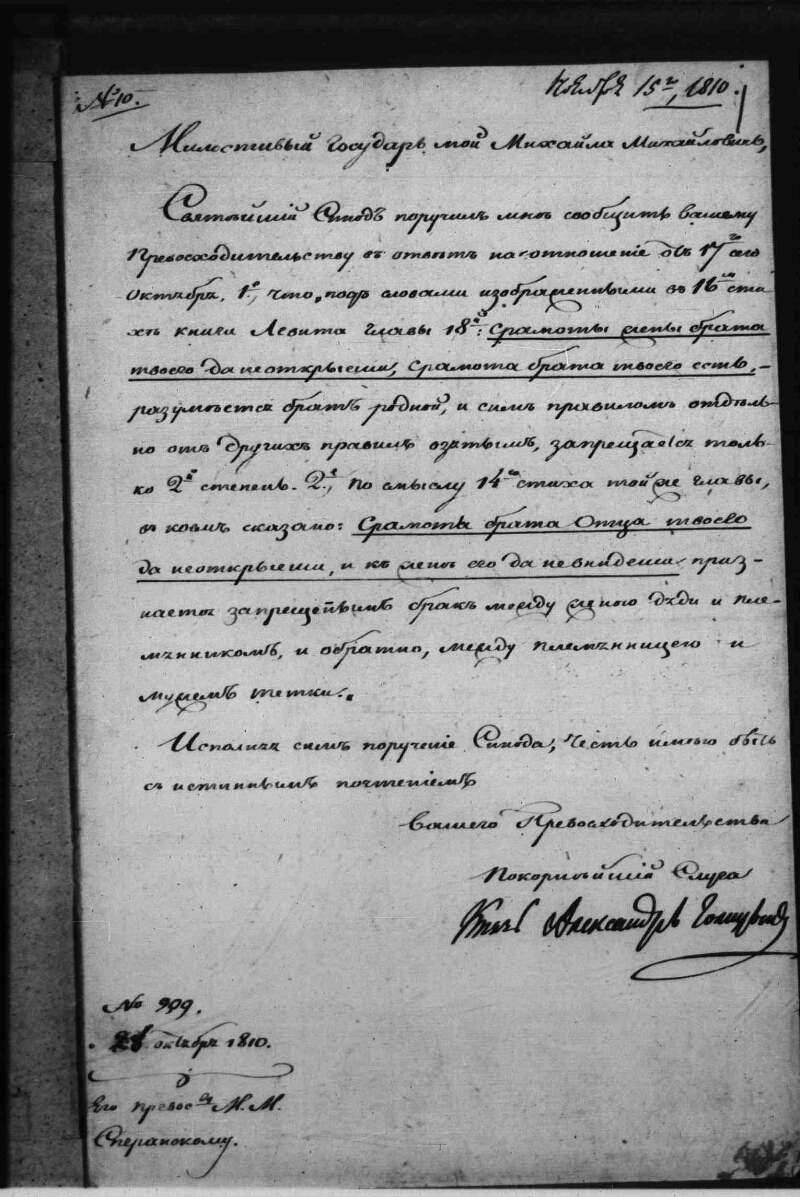 № 10.
Ноября 15го, 1810.
Милостивый Государь мой Михайла Михайловичь,
Святѣйшій Синодъ поручилъ мнѣ сообщить вашему
Превосходительству въ отвѣтъ на отношеніе отъ 17го сего
Октября, 1е, что подъ словами изображенными въ 16мъ сти-
хѣ книги Левита главы 18й: Срамоты жены брата
твоего да неоткрыеши, срамота брата твоего есть, -
разумѣется братъ родной, и симъ правиломъ отдѣль-
но отъ другихъ правилъ взятымъ, запрещается толь-
ко 2я степень. 2е, По смыслу 14го стиха той же главы,
въ коемъ сказано: Срамоты брата Отца твоего
да неоткрыеши, и къ женѣ его да невнидеши приз-
нается запрещеннымъ бракъ между женою дяди и пле-
мянникомъ, и обратно, между племянницею и
мужемъ тетки.
Исполняя симъ порученіе Синода, честь имѣю быть
съ истиннымъ почтеніемъ
вашего Превосходительства
Покорнѣйшій Слуга
Князь Александръ Голицынъ
№ 999.
28 октября 1810.
Его превосву М. М.
Сперанскому.